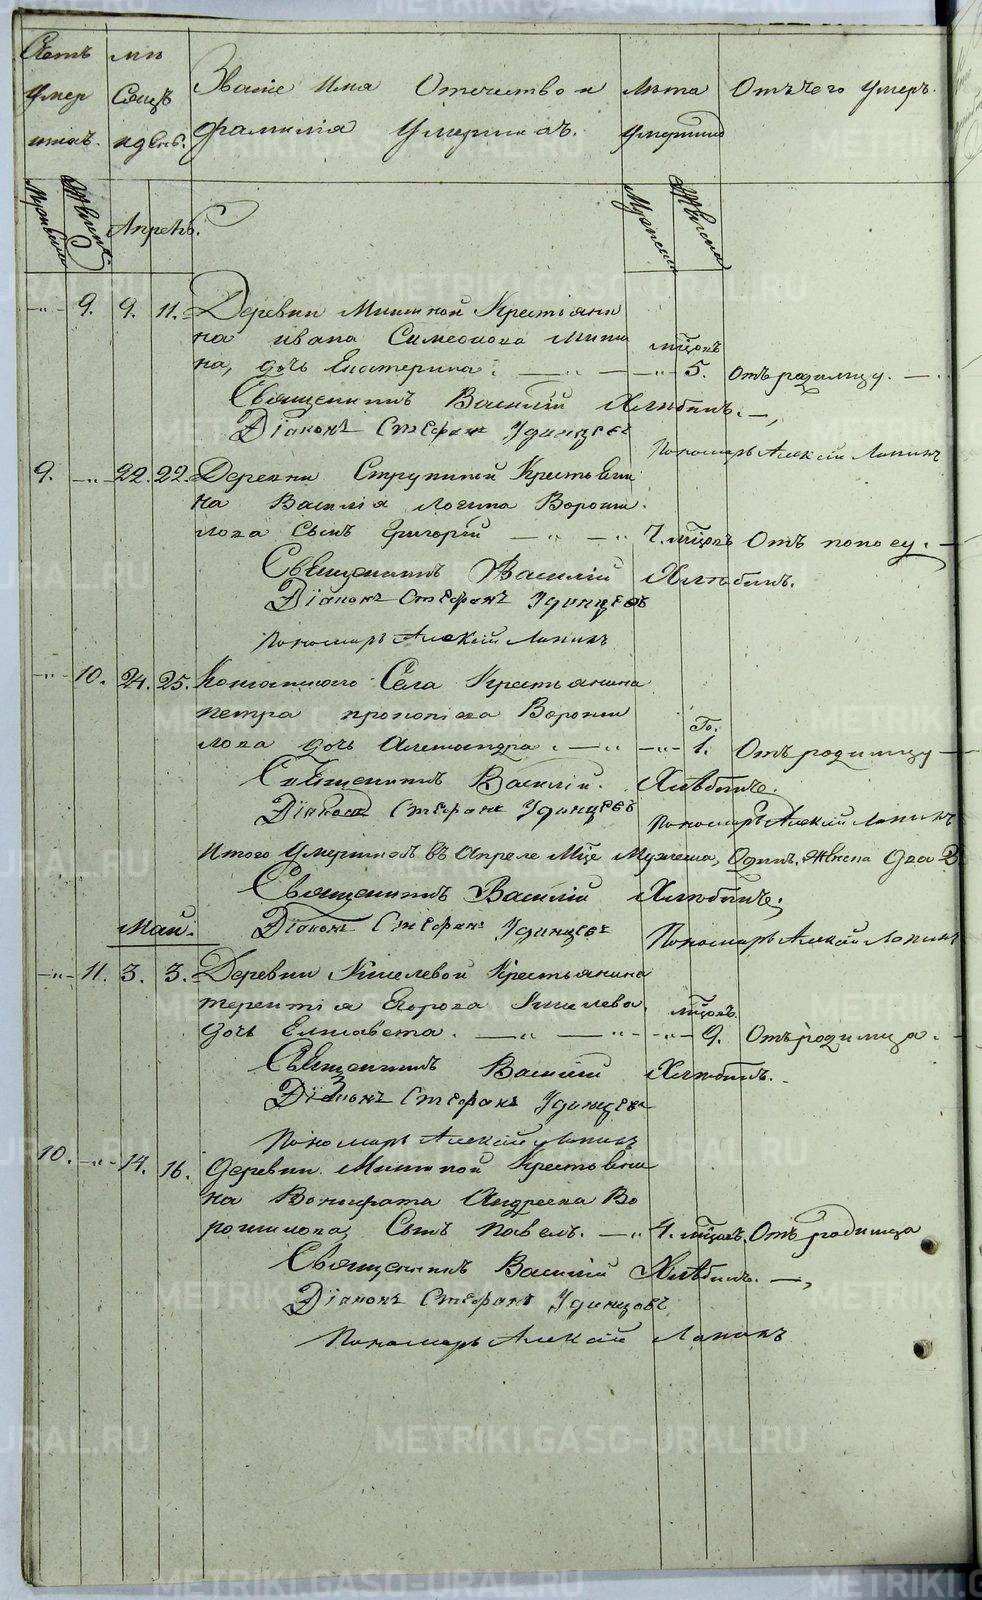 Счетъ умер шихъ.
Мѣ сяцъ и день.
Званіе Имя Отечество и
фамилія Умершихъ.
Лѣта умершихъ
Отъ чего умеръ.
Мужеска Женска
Апрель.
Мужеска Женска
-"- 9. 9. 11. Деревни Мишиной Крестьяни
на Ивана Симеонова Миши
на, дочь Екатерина. мѣсцовъ -"- 5. Отъ родимцу.
Священникъ Василій Хлѣбинъ.
Діаконъ Стефанъ Удинцевъ
Пономарь Алексій Лапинъ
9. -"- 22. 22. Деревни Крестьяни
на Василія Логина Вороши
лова Сынъ Григорій 7. мѣсцовъ Отъ поносу.
Священникъ Василій Хлѣбинъ.
Діаконъ Стефанъ Удинцевъ
Пономарь Алексій Лапинъ
-"- 10. 24. 25. Села Крестьянина
Петра Прокопіева Вороши
лова дочь Александра. -"- Го. 1. Отъ родимцу
Священникъ Василій Хлѣбинъ.
Діаконъ Стефанъ Удинцевъ
Пономарь Алексій Лапинъ
Итого Умершихъ въ Апреле Мце Мужеска, Одинъ, Женска Два 2
Священникъ Василій Хлѣбинъ.
Діаконъ Стефанъ Удинцевъ
Пономарь Алексій Лапинъ
Маи.
-"- 11. 3. 3. Деревни Киселевой Крестьянина
Терентія Егорова Киселева
дочь Елисавета. мѣсцовъ -"- 9. Отъ родимца.
Священникъ Василій Хлѣбинъ.
Діаконъ Стефанъ Удинцевъ
Пономарь Алексій Лапинъ
10. -"- 14. 16. Деревни Мишиной Крестьяни
на Вонифата Андреева Во
рошилова, Сынъ Павелъ. 4. мѣсцовъ. Отъ родимца
Священникъ Василій Хлѣбинъ.
Діаконъ Стефанъ Удинцовъ
Пономарь Алексій Лапинъ
METRIKI.GASO-URAL.RU